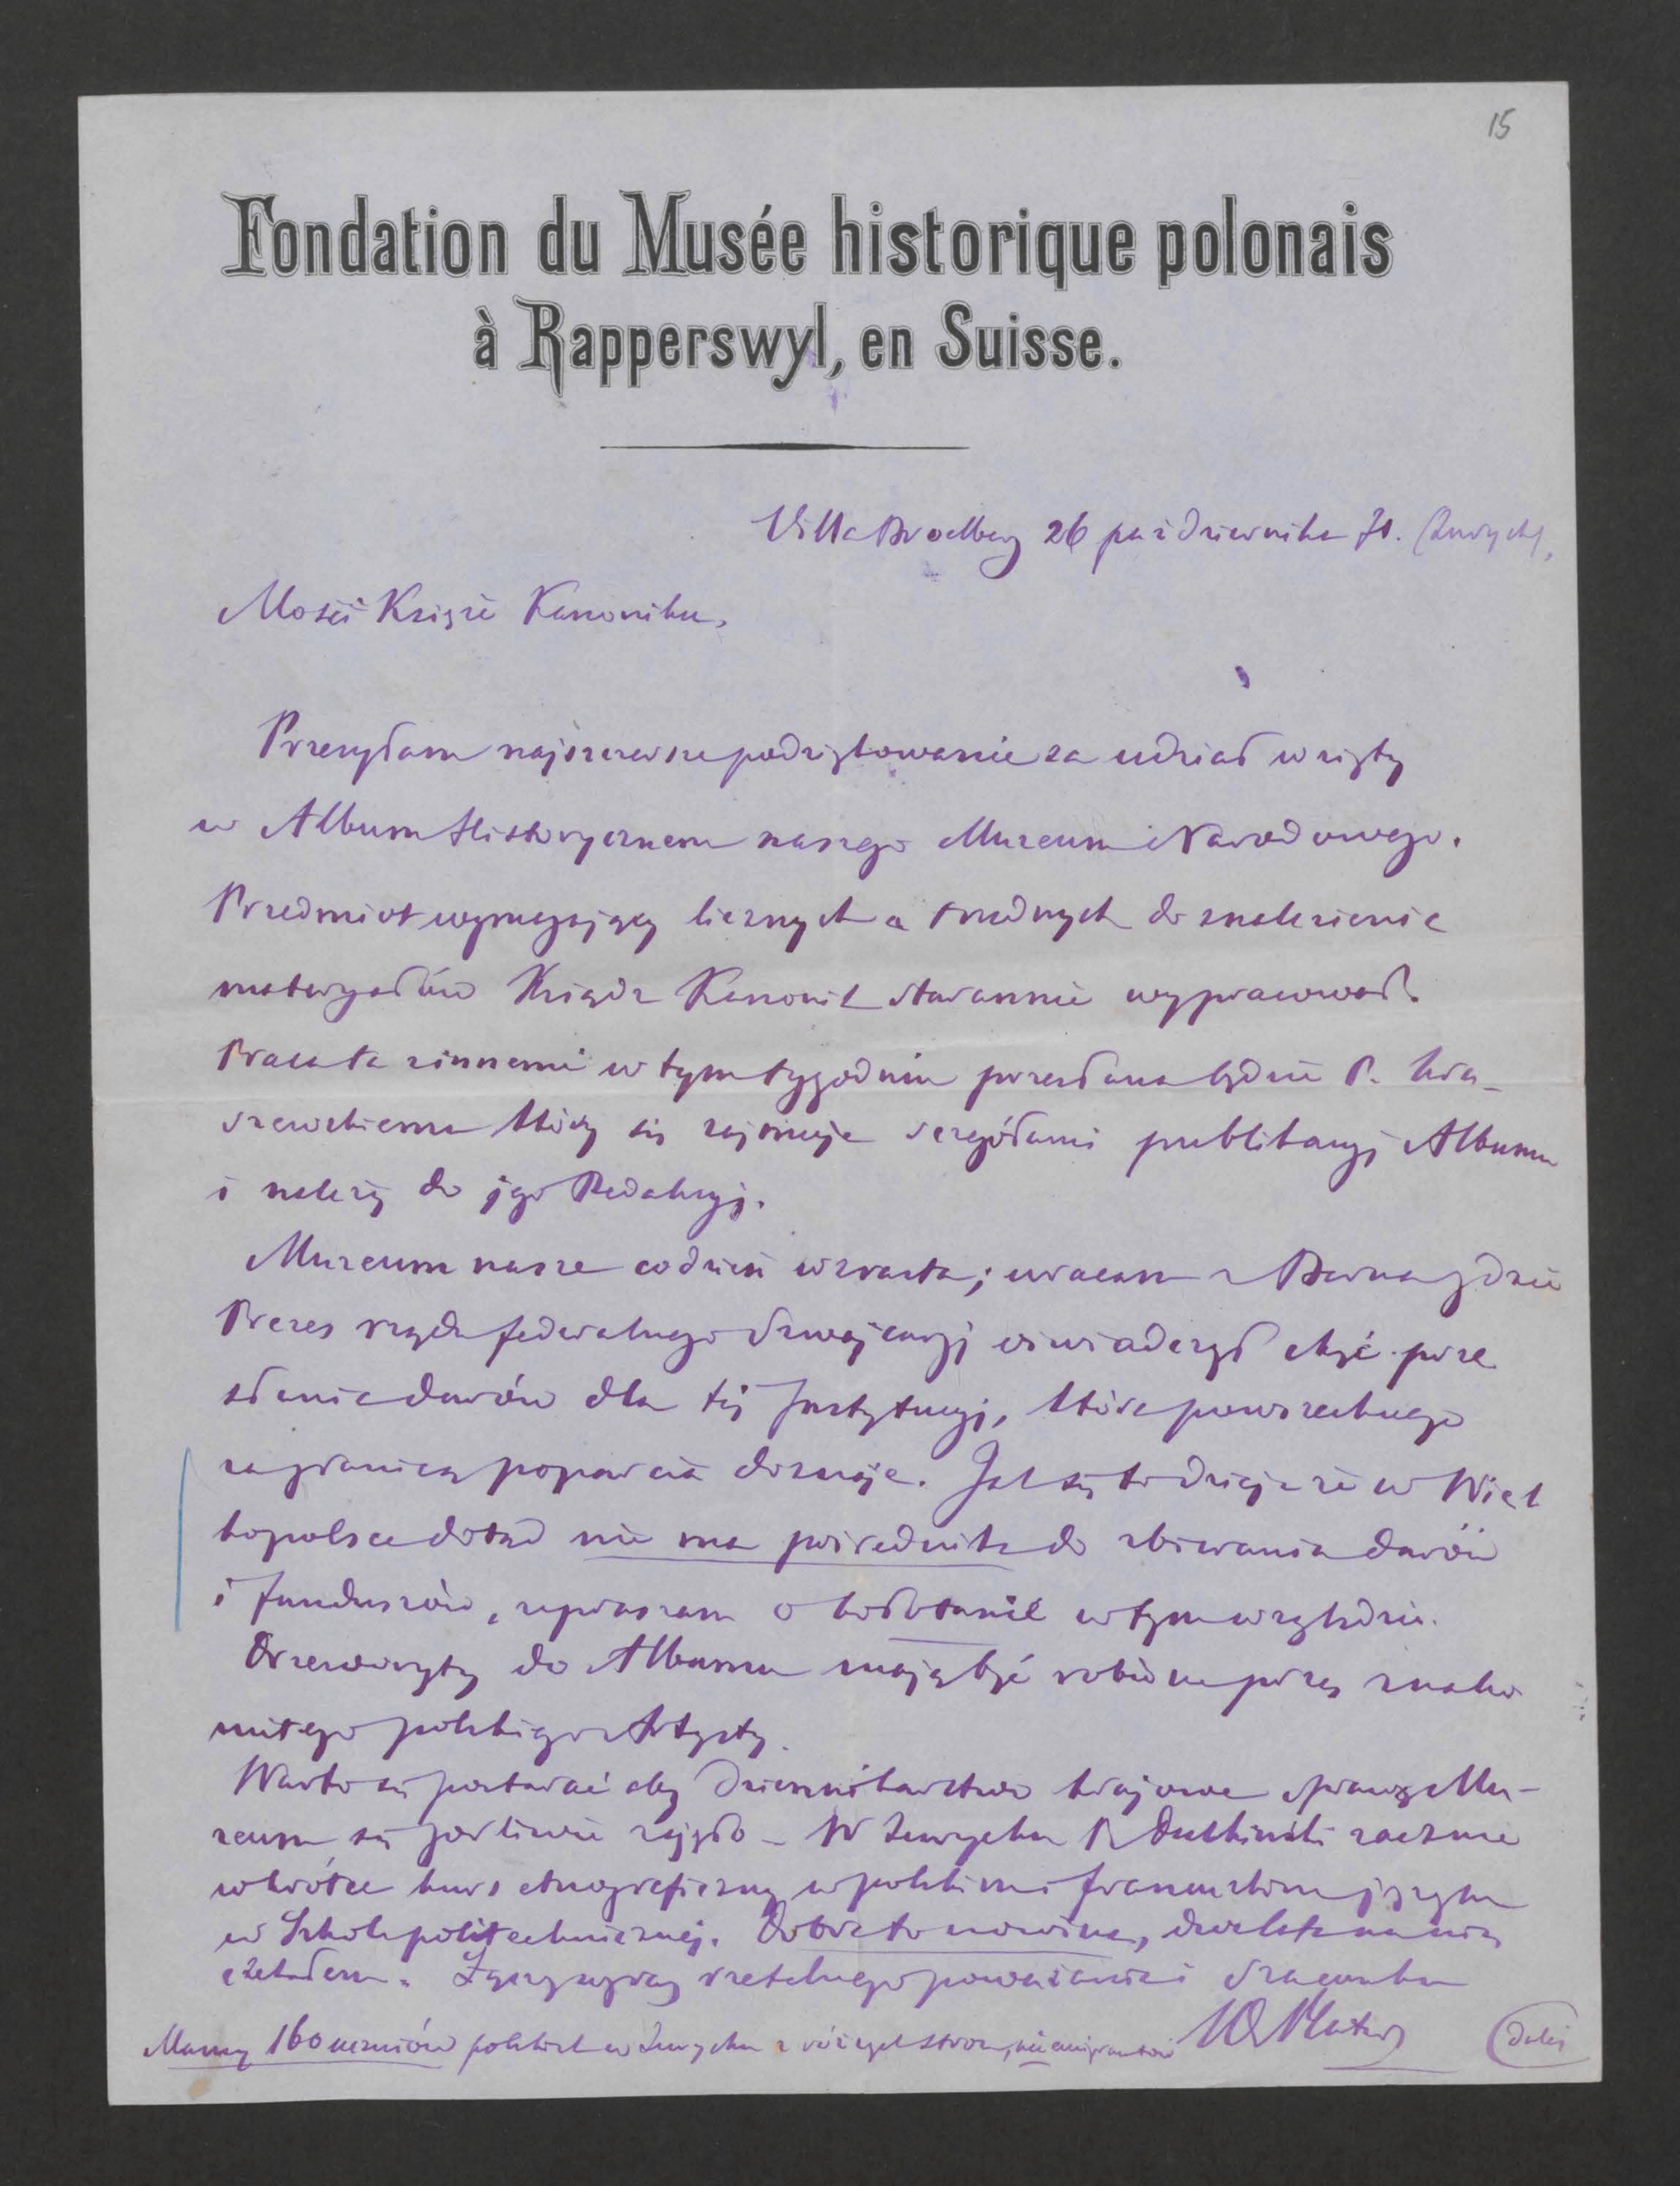 15
Fondation du Musée historique polonais
à Rapperswyl, en Suisse.
Villa Broelberg 26 października 71. (Zurych),
Mości Księże Kanoniku,
Przesyłam najszczersze podziękowanie za udział wzięty
w Album Historycznem naszego Muzeum Narodowego.
Przedmiot wymagający licznych a trudnych do znalezienia
materyałów Ksiądz Kanonik starannie wypracował.
Praca ta z innemi w tym tygodniu przesłana będzie P. Kra-
szewskiemu który się zajmuje szczegółami publikacyj Albumu
i należy do jego Redakcyj.
Muzeum nasze codzień wzrasta; wracam z Berna gdzie
Prezes rządu federalnego Szwajcaryj oświadczył chęć prze
słania darów dla tej Instytucyj, która powszechnego
zagranicą poparcia doznaje. Jak się to dzieje że w Wiel
kopolsce dotąd nie ma pośrednika do zbierania darów
i funduszów, upraszam o kołotanie w tym względzie.
Drzeworyty do Albumu mają być robione przez znako
mitego polskiego Artystę.
Warto się postarać aby Dziennikarstwo krajowe sprawą Mu-
zeum się gorliwie zajęło – W Zurychu P. Duchiński zacznie
wkrótce kurs etnograficzny w polskim i francuzkim języku
w Szkole politechnicznej. Dobra to nowina,
Łączę wyraz rzetelnego poważania i szacunku
Mamy 160 uczniów polskich w Zurychu z różnych stron, nie emigrantów W Plater (dalej